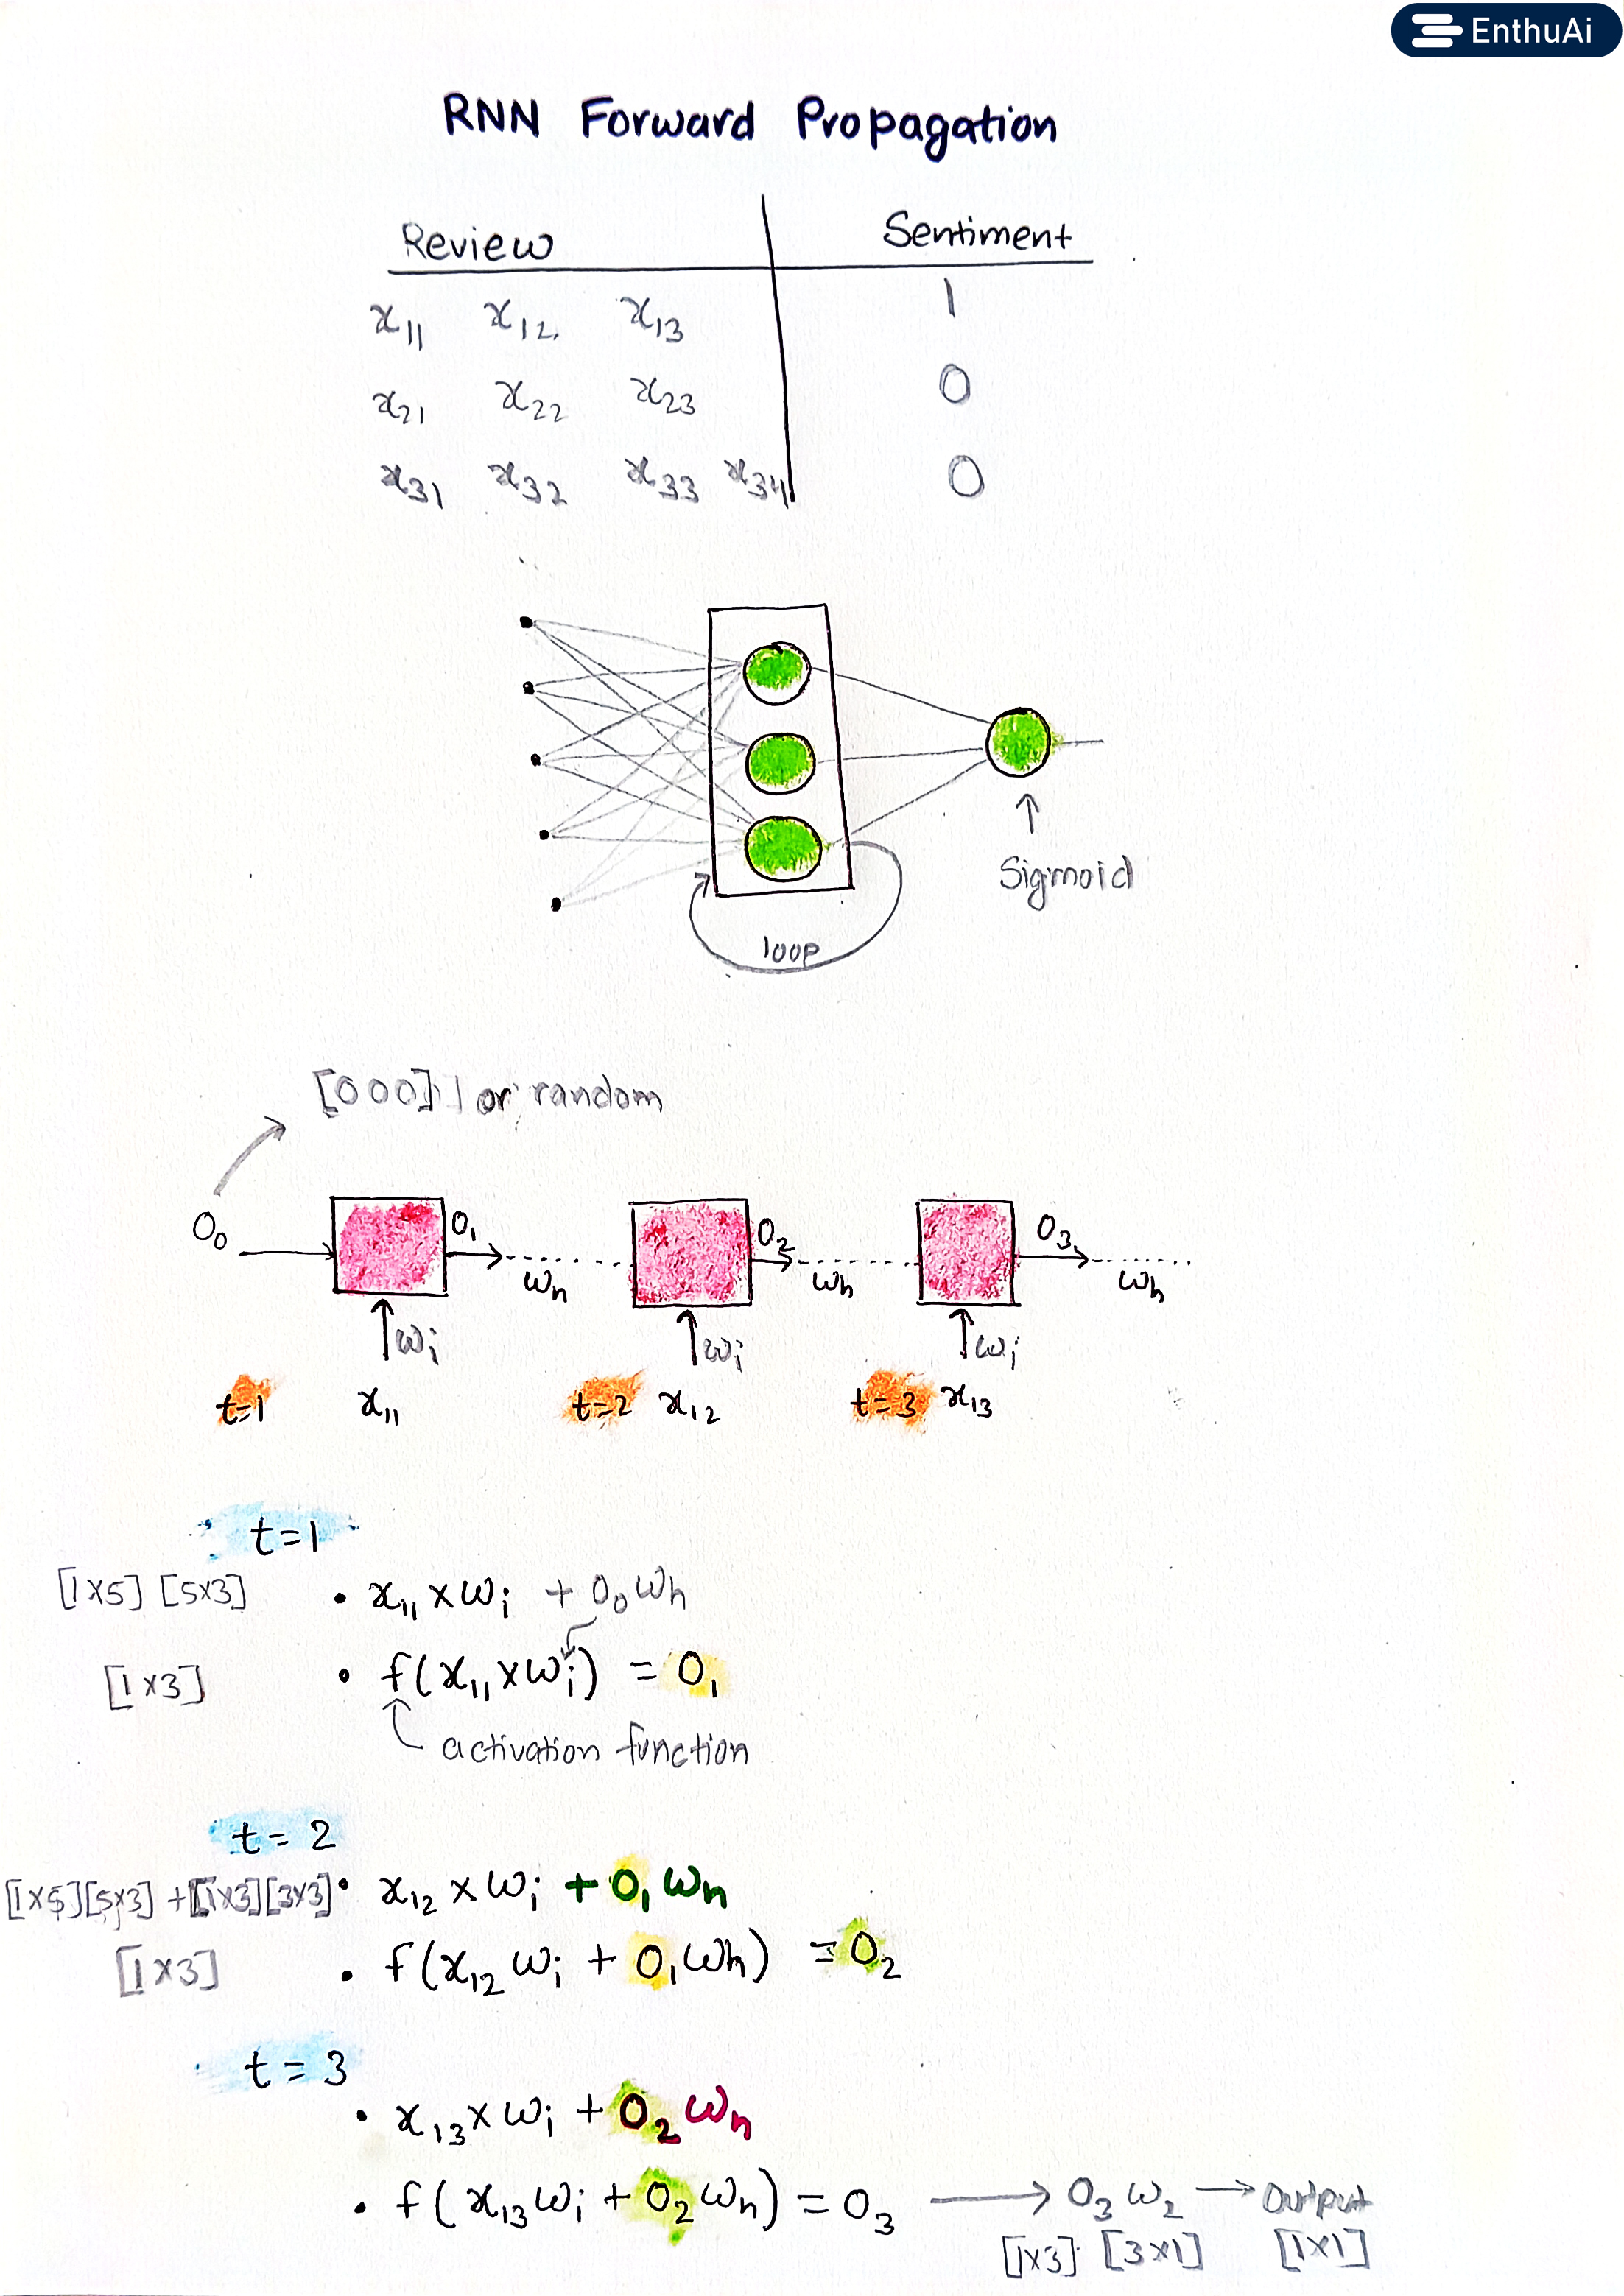 EnthuAi
RNN Forward Propagation
Review Sentiment
x₁₁ x₁₂ x₁₃ 1
x₂₁ x₂₂ x₂₃ 0
x₃₁ x₃₂ x₃₃ x₃₄ 0
Sigmoid
loop
[000] or random
O₀ O₁ O₂ O₃
ωₕ ωₕ ωₕ
ωᵢ ωᵢ ωᵢ
t=1 x₁₁ t=2 x₁₂ t=3 x₁₃
t=1
[1×5] [5×3] • x₁₁ × ωᵢ + O₀ωₕ
[1×3] • f(x₁₁ × ωᵢ) = O₁
activation function
t=2
[1×5][5×3] + [1×3][3×3] • x₁₂ × ωᵢ + O₁ωₕ
[1×3] • f(x₁₂ ωᵢ + O₁ωₕ) = O₂
t=3
• x₁₃ × ωᵢ + O₂ ωₕ
• f(x₁₃ωᵢ + O₂ωₕ) = O₃ → O₃ω₂ → output
[1×3] [3×1] [1×1]